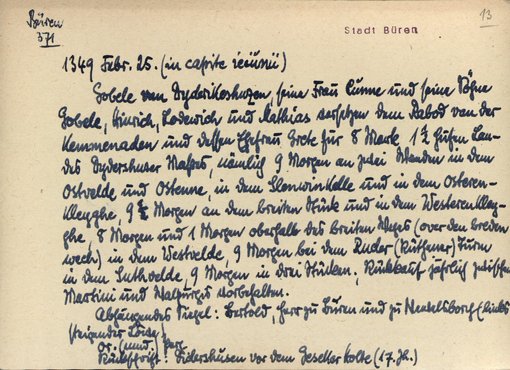 Büren
371
13
Stadt Büren
1349 Febr. 25. (in capite ieiunii)
Gobele van Dyderikeshusen, seine Frau Cunne und seine Söhne
Gobele, Hinrich, Lodervich und Mathias versetzen dem Rabod van der
Kemmenaden und dessen Ehefrau Grete für 8 Mark 1½ Hufen Lan-
des Dydershuser Maßes, nämlich 9 Morgen an zwei Wanden in dem
Ostvelde und Ostenne, in dem Slonwinkelle und in dem Osteren-
Kleyghe, 9½ Morgen an dem breiten Stück und in dem Westeren Kley-
ghe, 8 Morgen und 1 Morgen oberhalb des breiten Weges (over den breden
wech) in dem Westvelde, 9 Morgen bei dem Ruder (Rüthener) Turm
in dem Suthvelde, 9 Morgen in drei Stücken; Rückkauf jährlich zwischen
Martini und Walpurgis vorbehalten.
Abhängendes Siegel: Bertold, Herr zu Büren und zu Wevelsborch (links
steigender Löwe)
Or. (mnd.) Perg.
Rückschrift: Sidershusen vor dem Geseker Holte (17. Jh.)